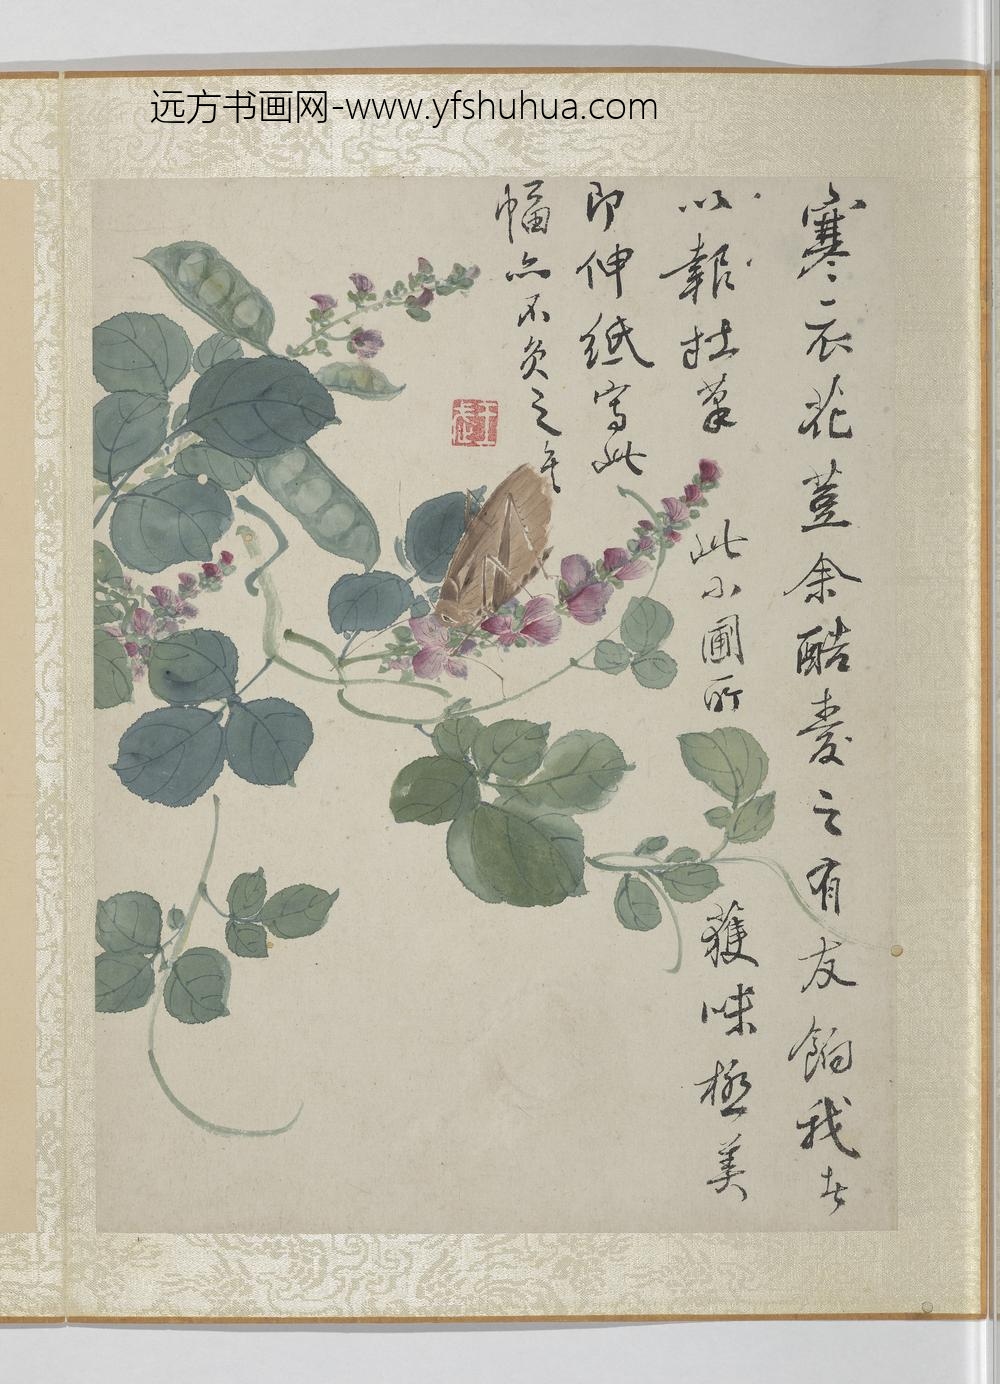 远方书画网-www.yfshuhua.com
寒衣花荳余酷愛之有友餉我者
以報拙筆此小圃所獲味極美
即伸紙寫此
幅亦不負之矣